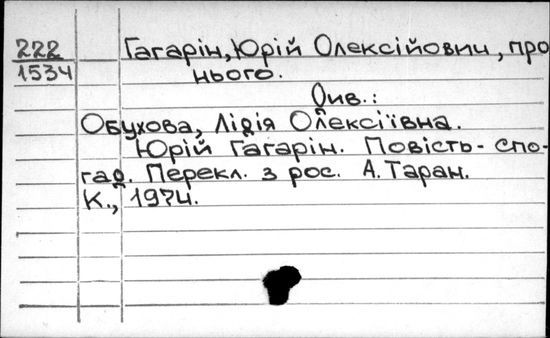 222
1534
Гагарін, Юрій Олексійович, про
нього.
Див.:
Обухова, Лідія Олексіївна.
Юрій Гагарін. Повість-спо-
гад. Перекл. з рос. А. Таран.
К., 1974.